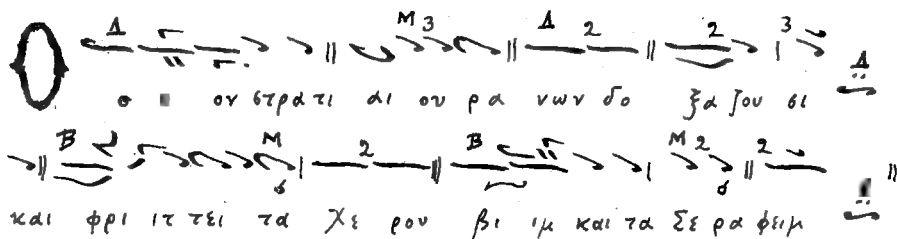 Ον στρατιαι ουρανων δοξαζουσι
και φριττει τα Χερουβιμ και τα Σεραφειμ